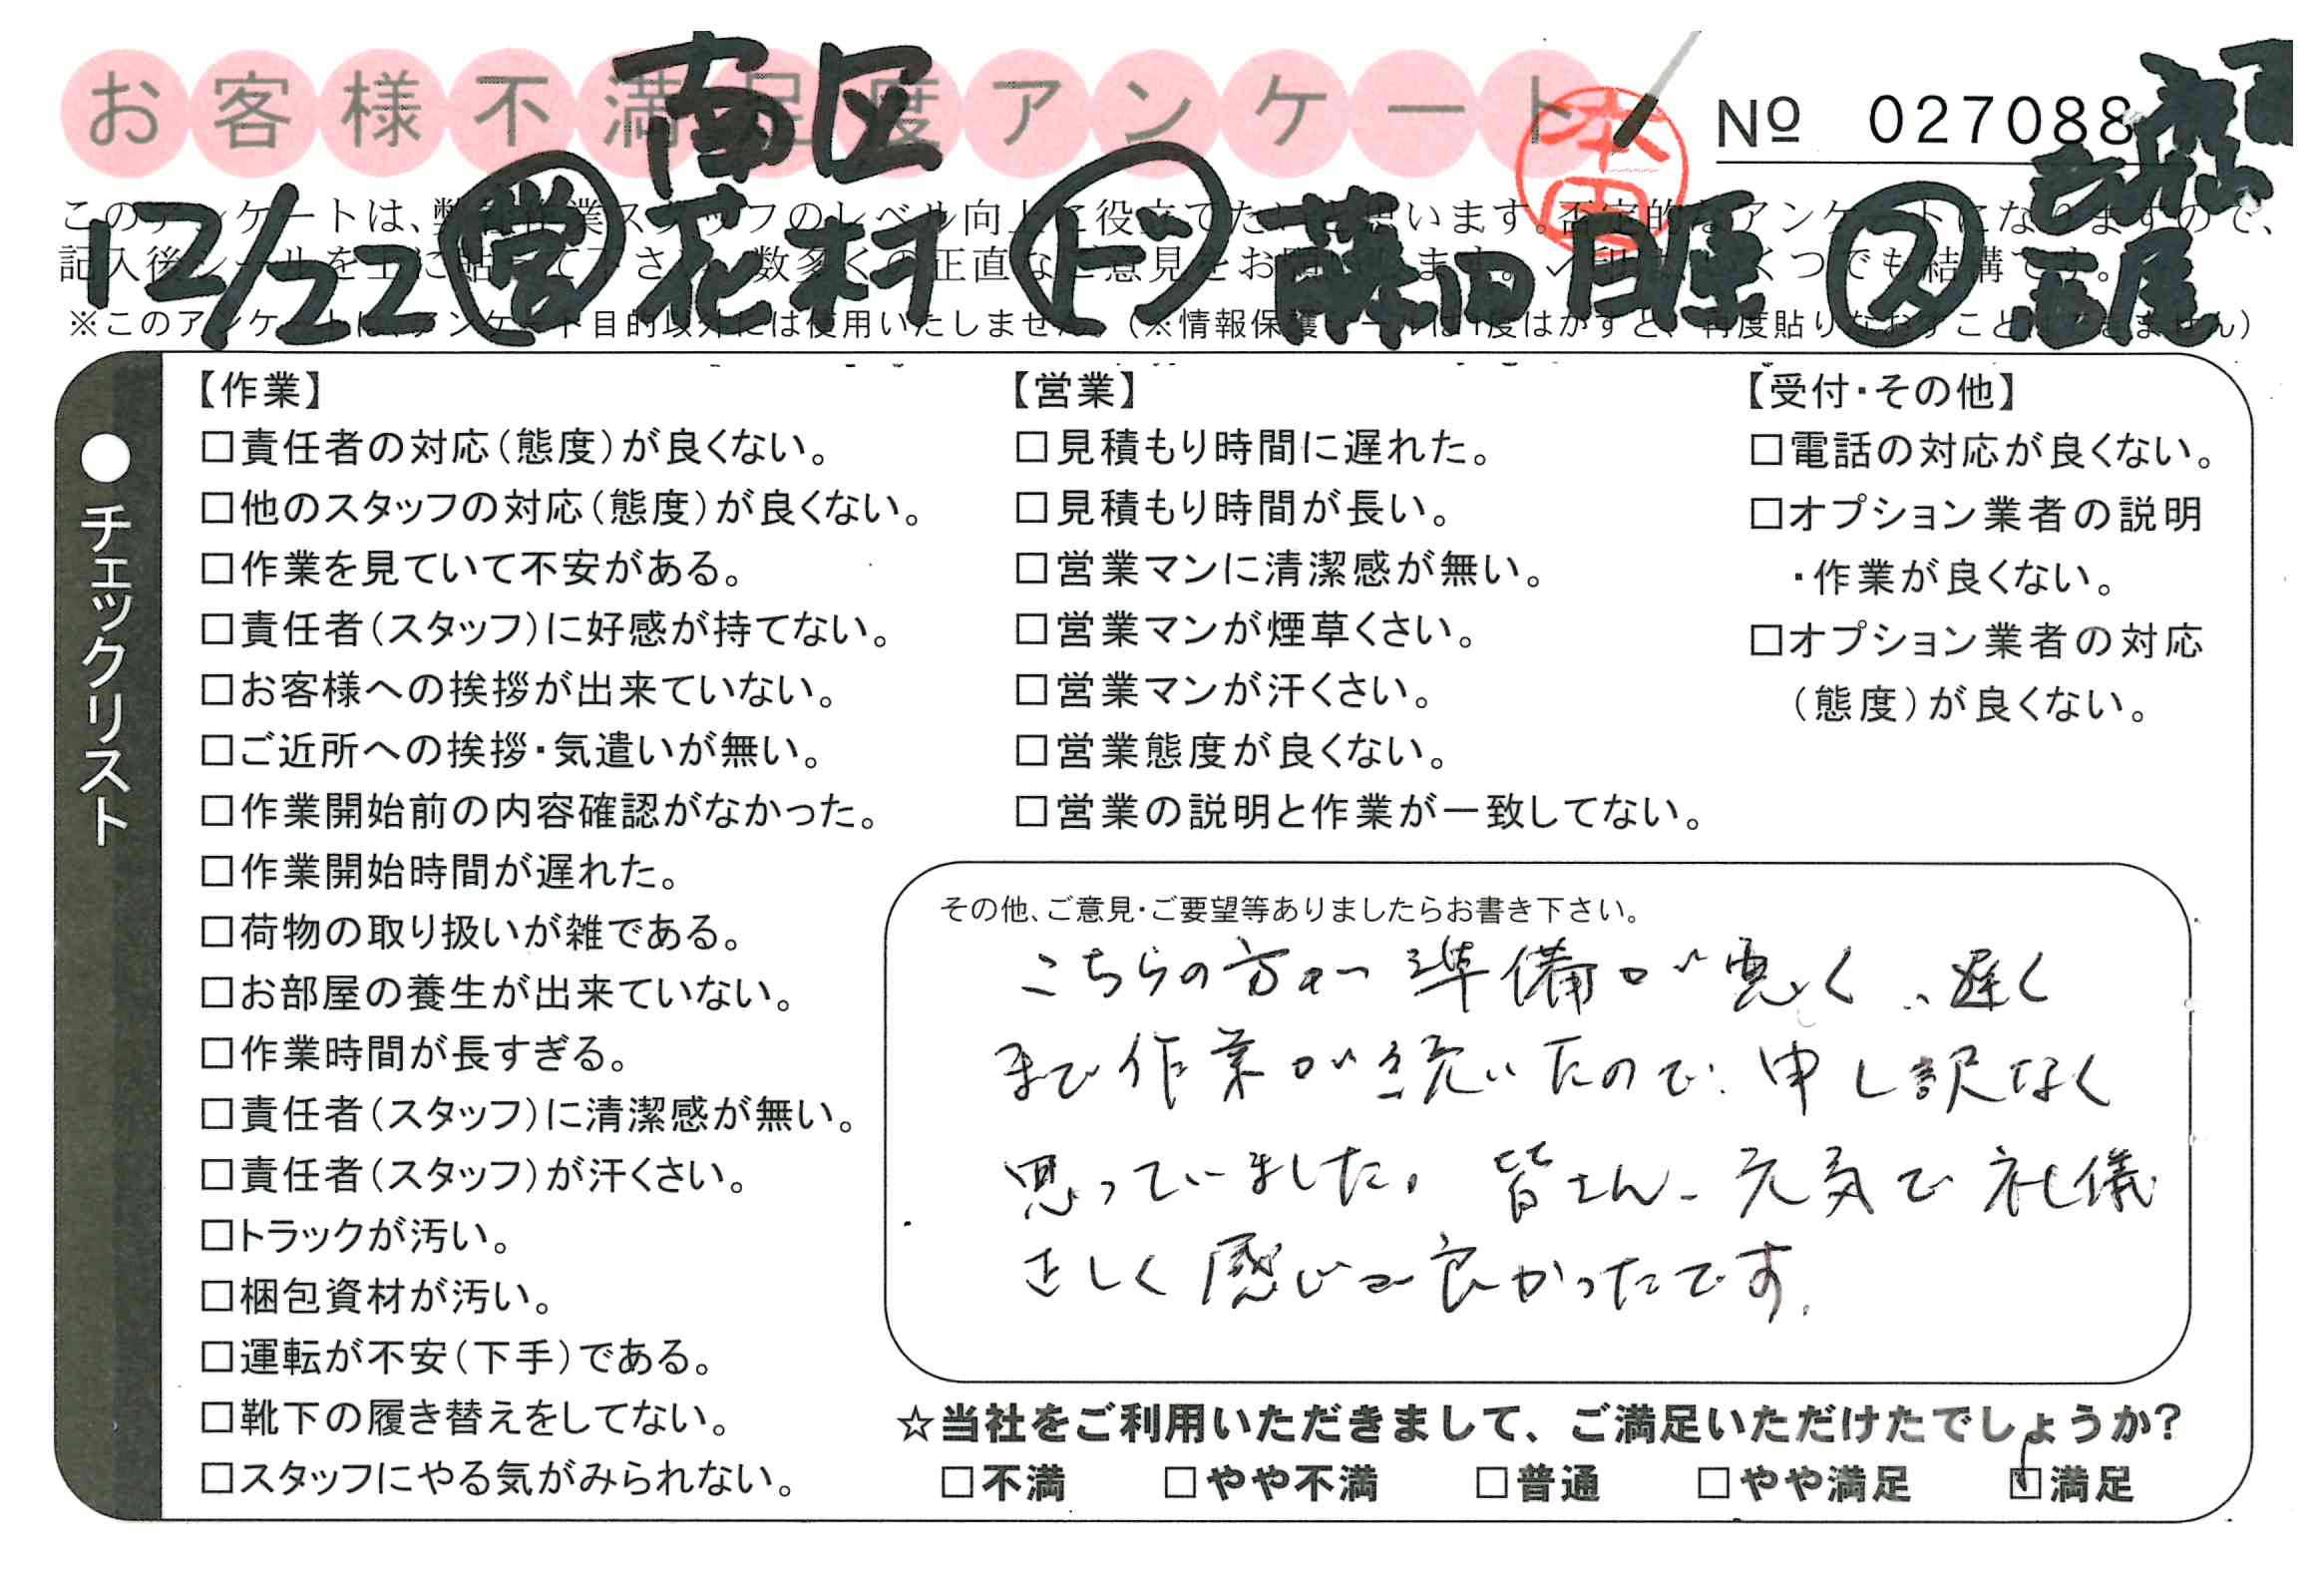 お客様不満足度アンケート
南区
本田
№ 027088
12/22 営 花村 ド 藤田 ス
このアンケートは、
※このアンケートは、アンケート目的以外には使用いたしません。(※情報保護シールは1度はがすと、再度貼りなおすことはできません)
●チェックリスト
【作業】
□責任者の対応(態度)が良くない。
□他のスタッフの対応(態度)が良くない。
□作業を見ていて不安がある。
□責任者(スタッフ)に好感が持てない。
□お客様への挨拶が出来ていない。
□ご近所への挨拶・気遣いが無い。
□作業開始前の内容確認がなかった。
□作業開始時間が遅れた。
□荷物の取り扱いが雑である。
□お部屋の養生が出来ていない。
□作業時間が長すぎる。
□責任者(スタッフ)に清潔感が無い。
□責任者(スタッフ)が汗くさい。
□トラックが汚い。
□梱包資材が汚い。
□運転が不安(下手)である。
□靴下の履き替えをしてない。
□スタッフにやる気がみられない。
【営業】
□見積もり時間に遅れた。
□見積もり時間が長い。
□営業マンに清潔感が無い。
□営業マンが煙草くさい。
□営業マンが汗くさい。
□営業態度が良くない。
□営業の説明と作業が一致してない。
【受付・その他】
□電話の対応が良くない。
□オプション業者の説明
・作業が良くない。
□オプション業者の対応
(態度)が良くない。
その他、ご意見・ご要望等ありましたらお書き下さい。
こちらの方の準備が悪く、遅く
まで作業が続いたので、申し訳なく
思っていました。皆さん、元気で礼儀
正しく感じで良かったです。
☆当社をご利用いただきまして、ご満足いただけたでしょうか?
□不満 □やや不満 □普通 □やや満足 ☑満足